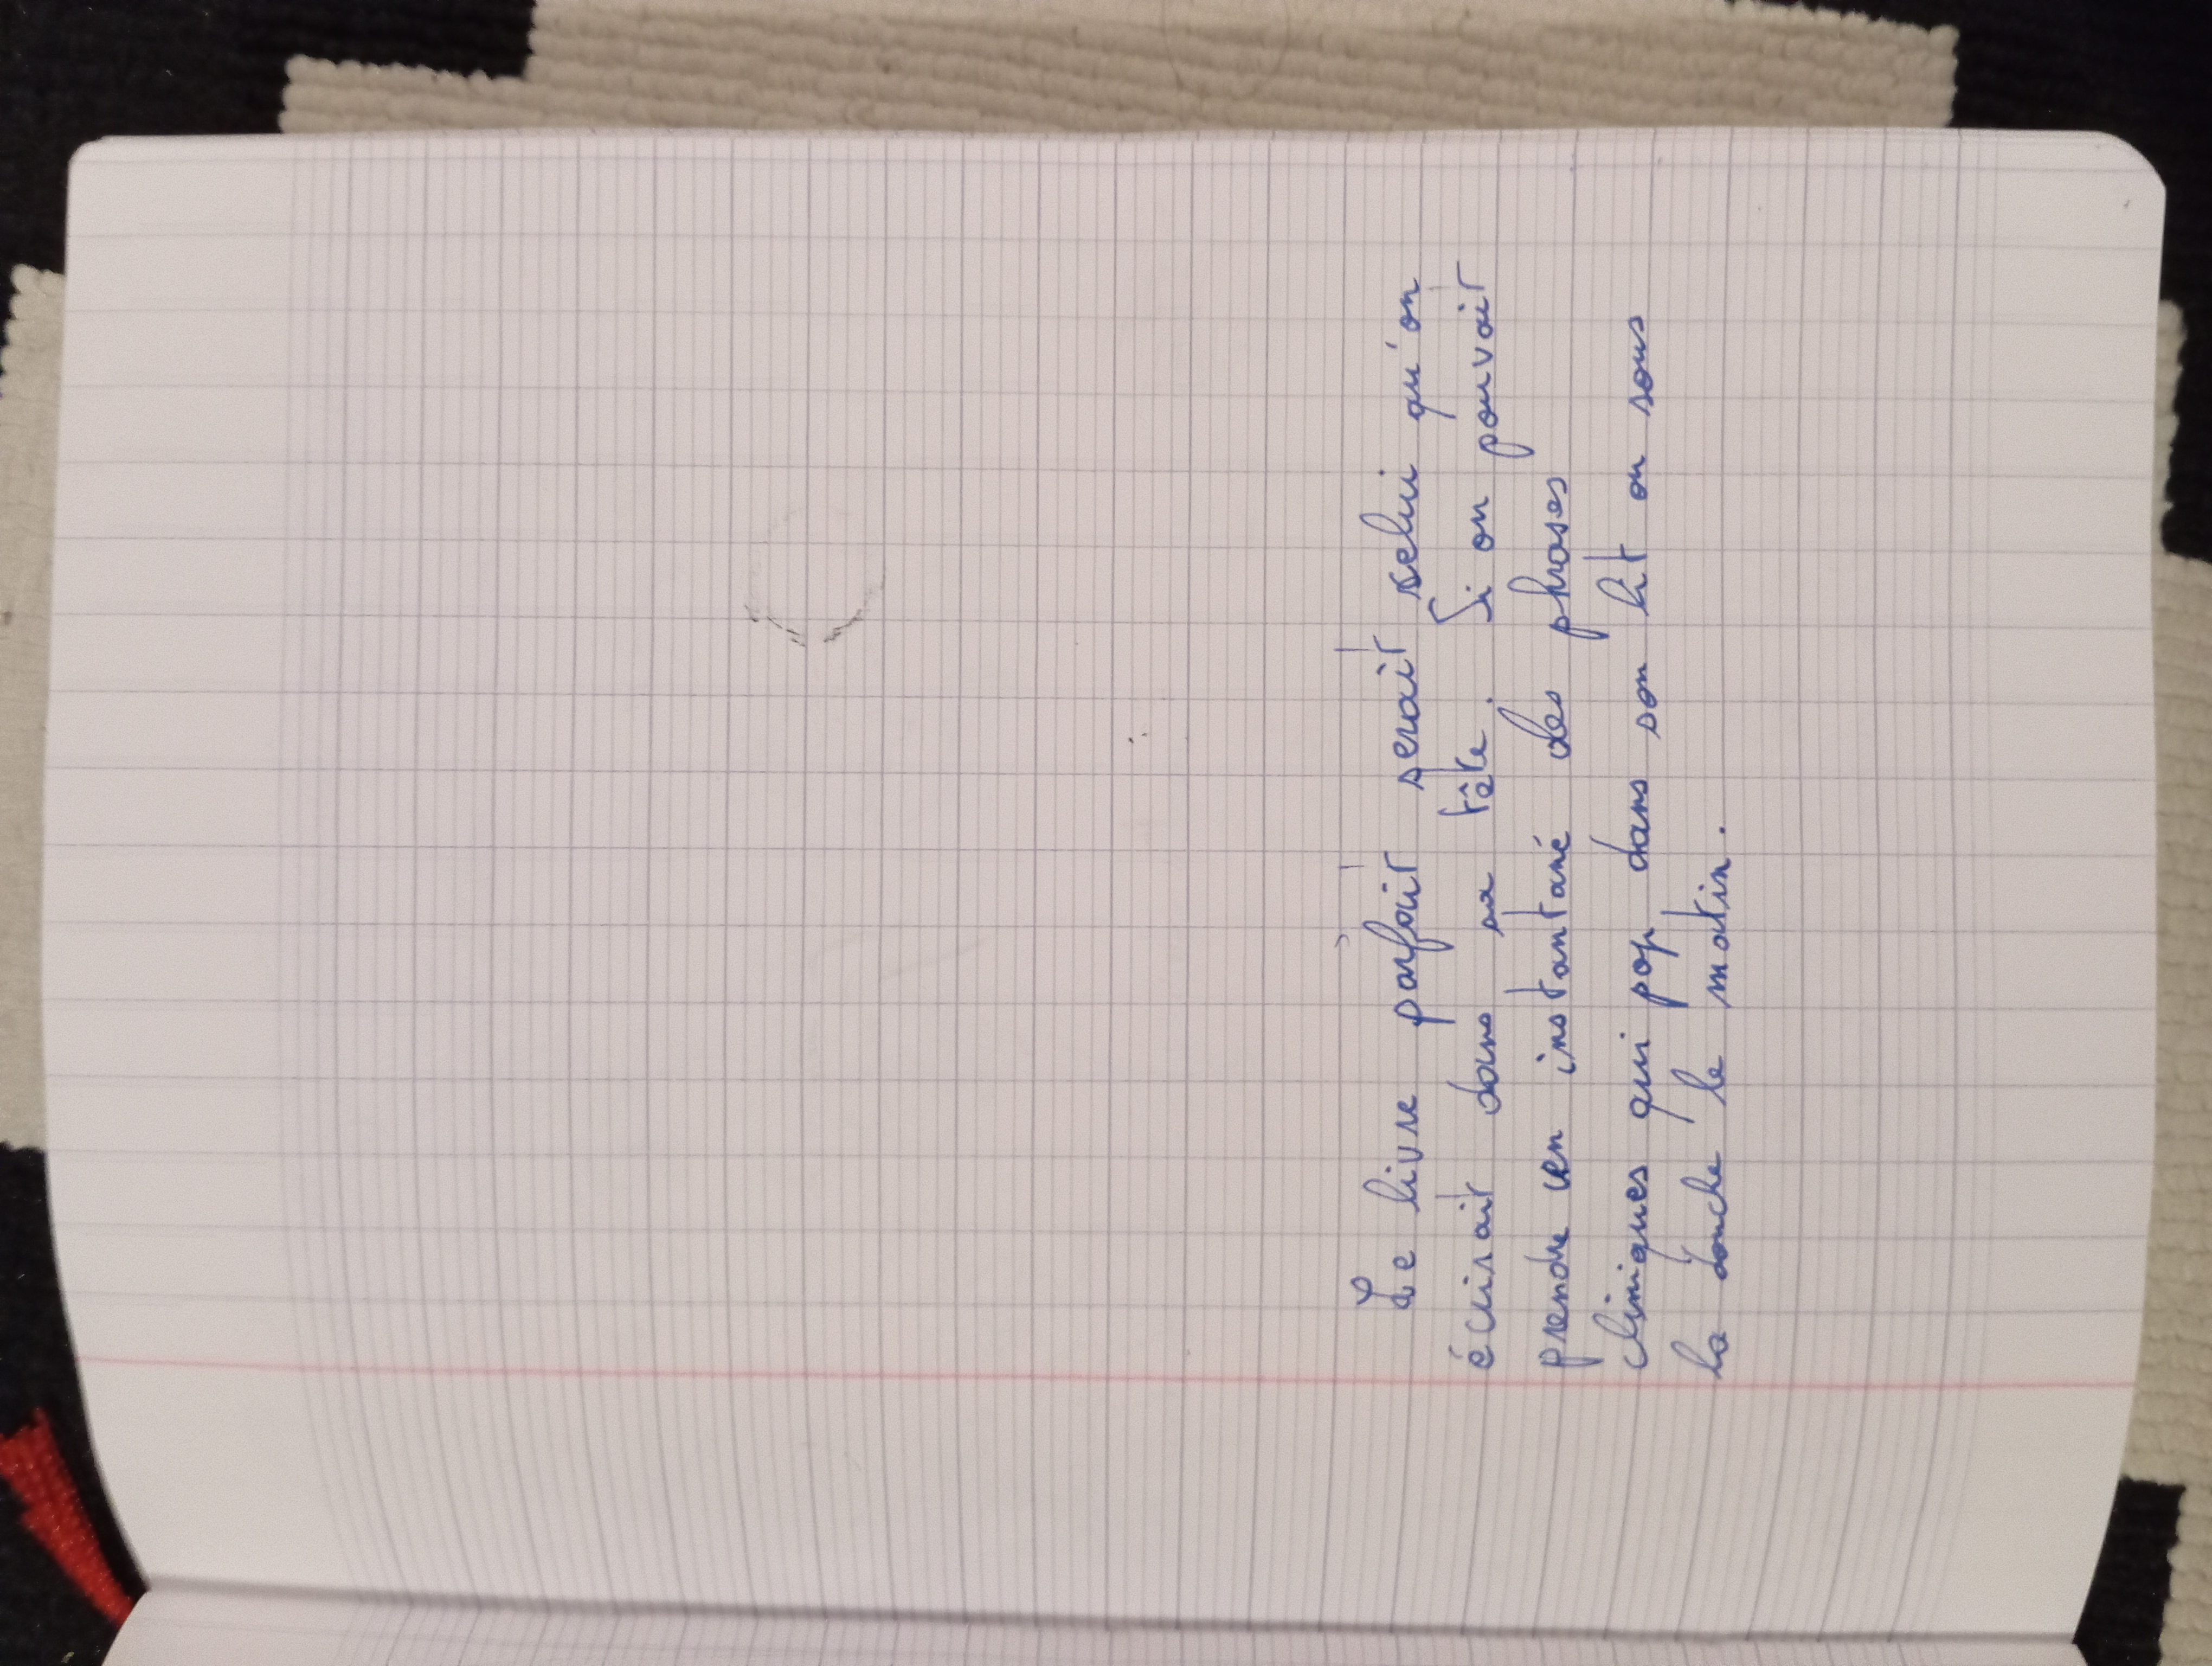 Le livre parfait serait celui qu'on
écrirait dans sa tête. Si on pouvait
prendre un instantané des phrases
cliniques qui pop dans son lit ou sous
la douche le matin.